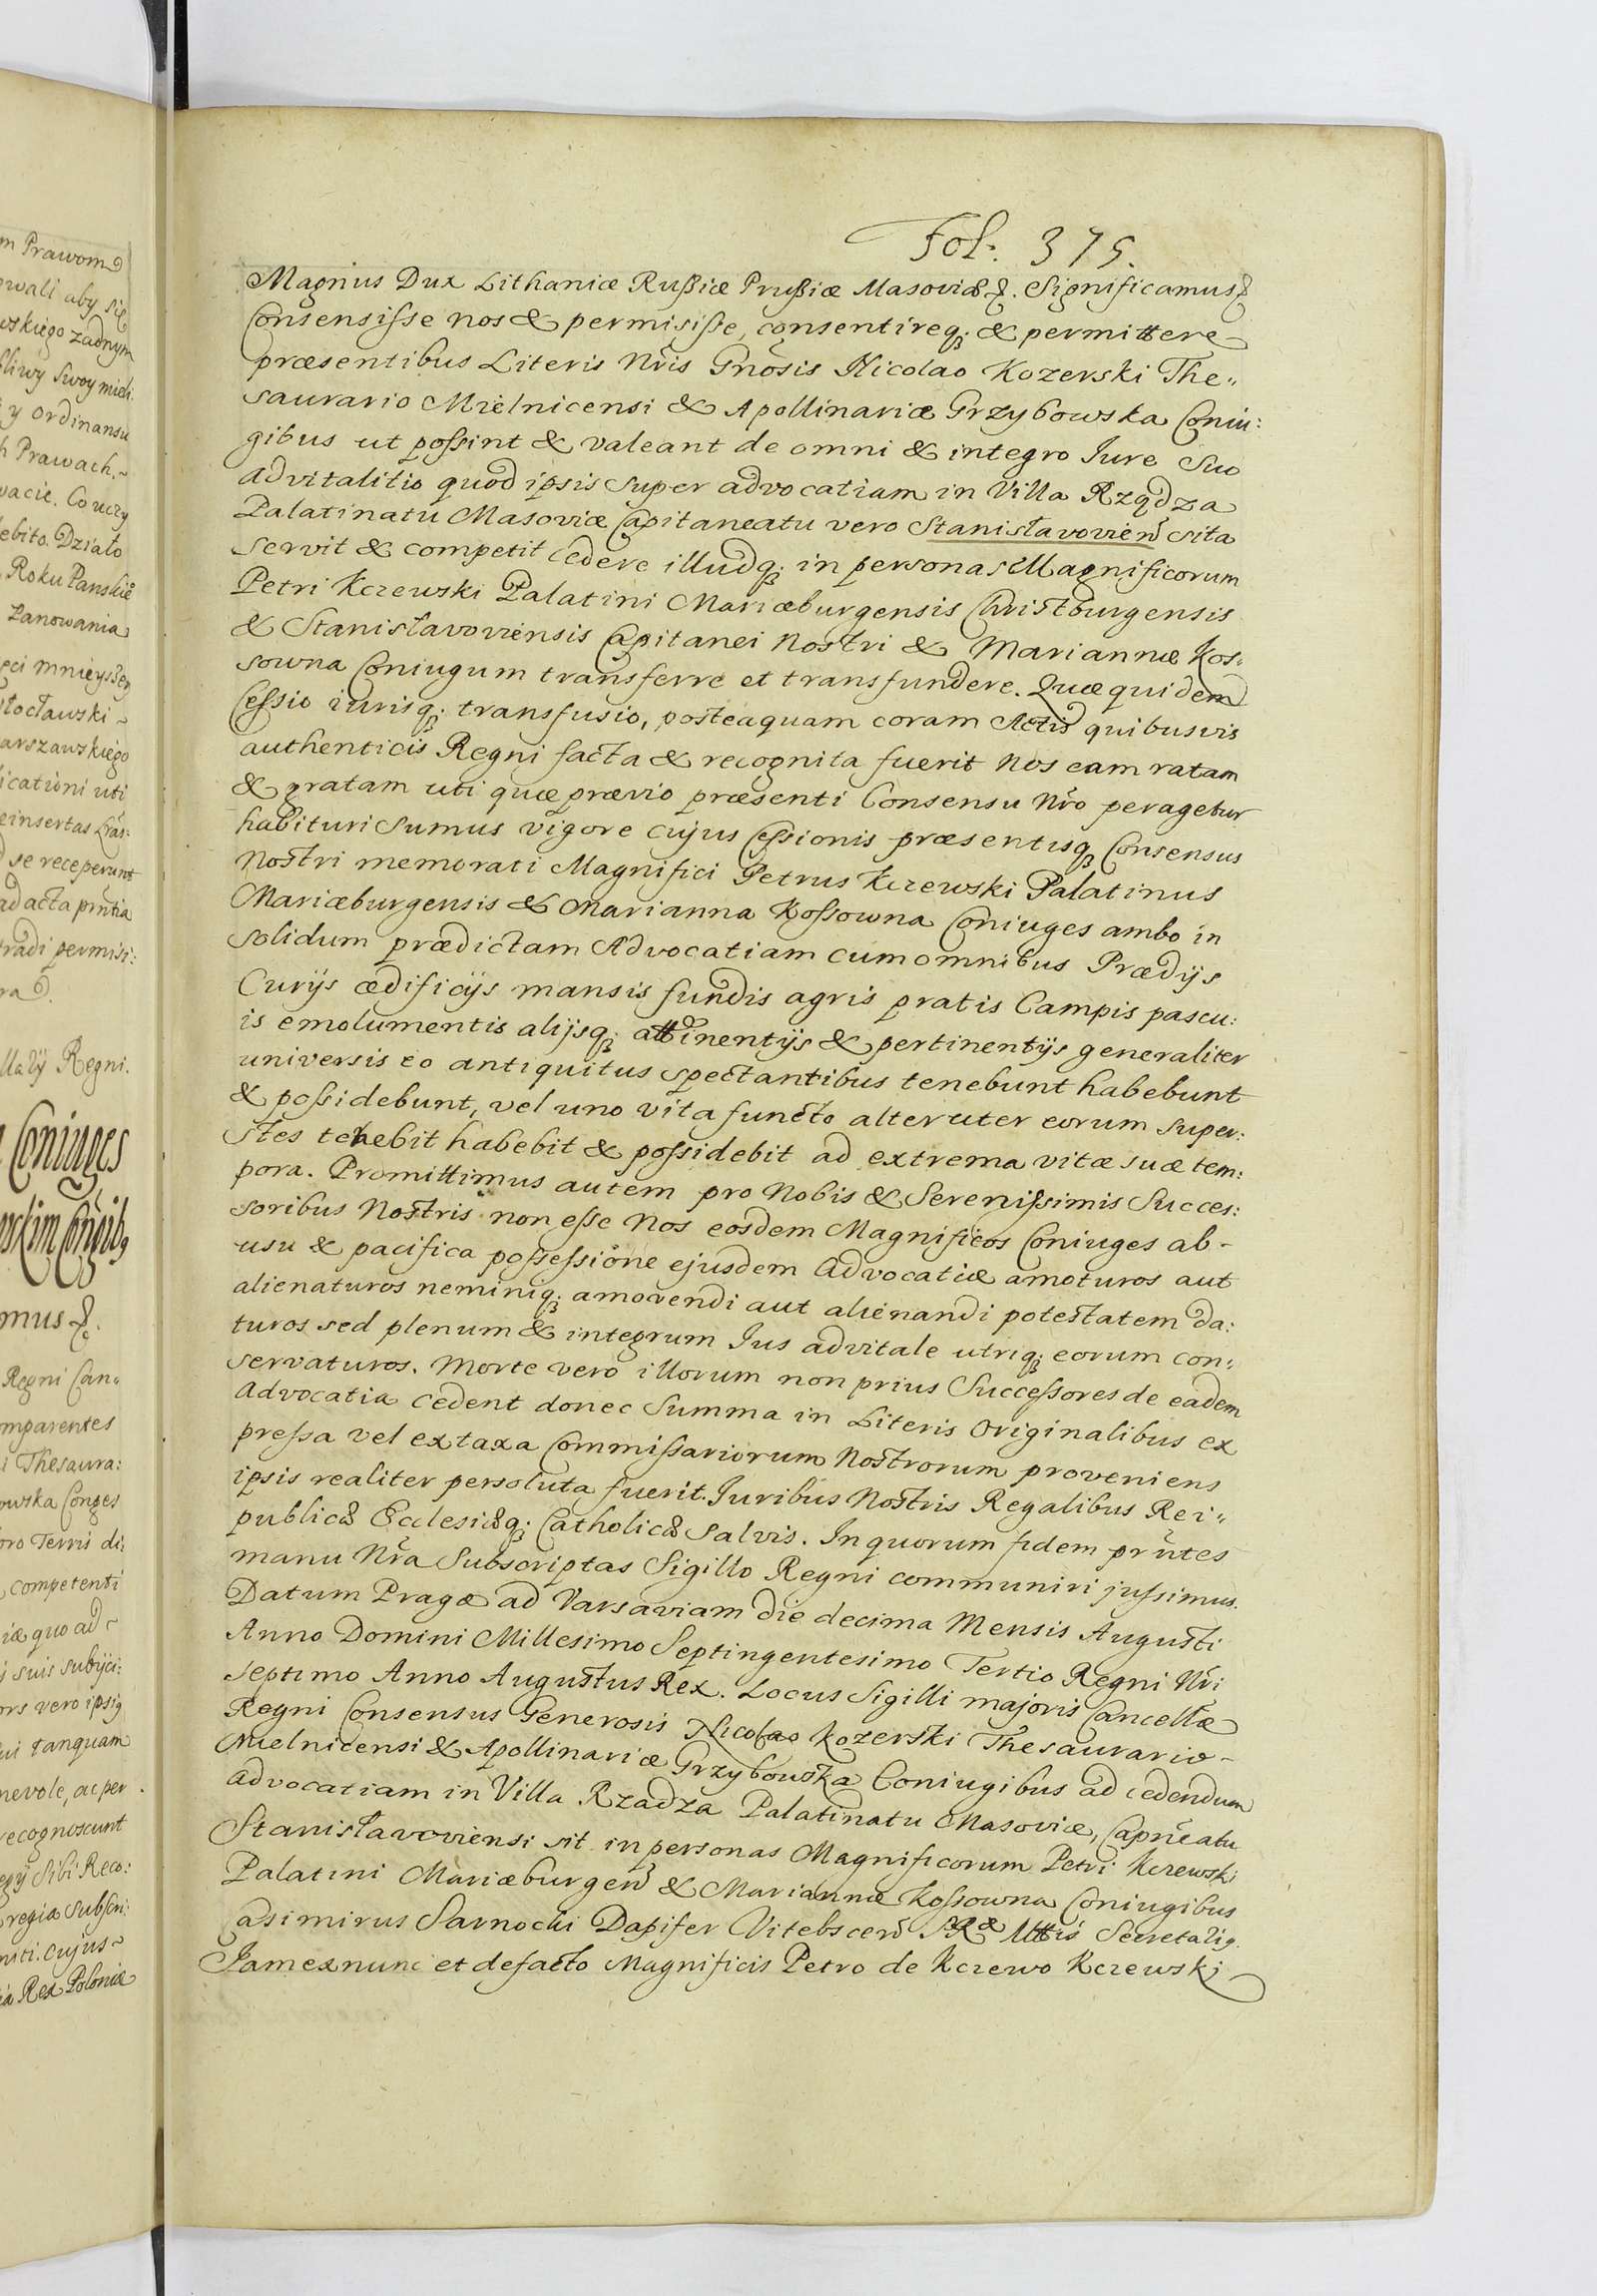 Fol. 375.
Magnus Dux Lithaniæ Rußiæ Prußiæ Masoviæ &. Significamus &
Consensisse nos & permisisse, consentireq; & permittere
præsentibus Literis Nris Gnosis Nicolao Kozerski The„
saurario Mielnicensi & Apollinariæ Grzybowska Coniu:
gibus ut possint & valeant de omni & integro Iure Suo
Advitalitio quod ipsis super advocatiam in Villa Rządza
Palatinatu Masoviæ Capitaneatu vero Stanisławovien sita
servit & competit cedere illudq; in personas Magnificorum
Petri Kczewski Palatini Mariæburgensis Christburgensis
& Stanisławoviensis Capitanei Nostri & Mariannæ Kos„
sowna Coniugum transferre et transfundere. Quæ quidem
Cessio iurisq; transfusio, posteaquam coram Actis quibusvis
authenticis Regni facta & recognita fuerit Nos eam ratam
& gratam uti quæ prævio præsenti Consensu Nro peragetur
habituri sumus vigore cujus Cessionis præsentisq; Consensus
Nostri memorati Magnifici Petrus Kczewski Palatinus
Mariæburgensis & Marianna Kossowna Coniuges ambo in
solidum prædictam Advocatiam cum omnibus Prædijs
Curijs ædificijs mansis fundis agris pratis Campis pascu:
is emolumentis alijsq; attinentijs & pertinentijs generaliter
universis eo antiquitus spectantibus tenebunt habebunt
& possidebunt, vel uno vita functo alteruter eorum super:
stes tenebit habebit & possidebit ad extrema vitæ suæ tem:
pora. Promittimus autem pro Nobis & Serenissimis Succes:
soribus Nostris non esse Nos eosdem Magnificos Coniuges ab -
usu & pacifica possessione ejusdem Advocatiæ amoturos aut
alienaturos neminiq; amovendi aut alienandi potestatem da:
turos sed plenum & integrum Ius advitale utriq; eorum con„
servaturos. Morte vero illorum non prius Successores de eadem
Advocatia cedent donec Summa in Literis Originalibus ex
pressa vel ex taxa Commissariorum Nostrorum proveniens
ipsis realiter persoluta fuerit. Iuribus Nostris Regalibus Rei„
publicæ Ecclesiæq; Catholicæ salvis. In quorum fidem prntes
manu Nra Subscriptas Sigillo Regni communiri jussimus.
Datum Pragæ ad Varsaviam die decima Mensis Augusti
Anno Domini Millesimo Septingentesimo Tertio Regni Nri
septimo Anno Augustus Rex. Locus Sigilli majoris Cancellæ
Regni Consensus Generosis Nicolao Kozerski Thesaurario -
Mielnicensi & Apollinariæ Grzybowska Coniugibus ad cedendum
advocatiam in Villa Rzadza Palatinatu Masoviæ, Capneatu
Stanisławoviensi sit in personas Magnificorum Petri Kczewski
Palatini Mariæburgen & Mariannæ Kossowna Coniugibus
Casimirus Sarnocki Dapifer Vitebscen SRæ Mttis Secretarig.
Jam ex nunc et de facto Magnificis Petro de Kczewo Kczewski